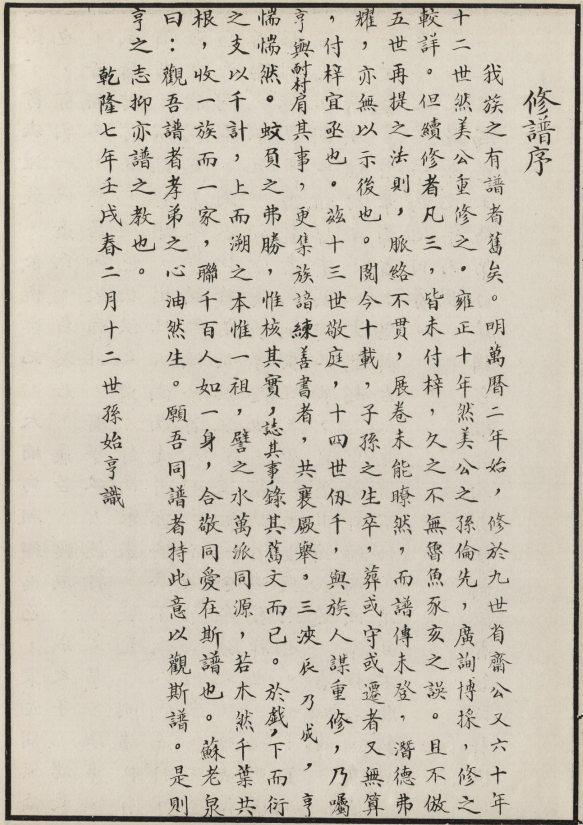 修譜序
我族之有譜者舊矣。明萬曆二年始，修於九世省齋公又六十年
十二世然美公重修之。雍正十年然美公之孫倫先，廣詢博採，修之
較詳。但續修者凡三，皆未付梓，久之不無魯魚豕亥之誤。且不倣
五世再提之法則，脈絡不貫，展卷未能瞭然，而譜傳未登，潛德弗
耀，亦無以示後也。閱今十載，子孫之生卒，葬或守或遷者又無算
，付梓宜亟也。玆十三世敬庭，十四世仞千，與族人謀重修，乃囑
亨與耐村肩其事，更集族諳練善書者，共襄厥舉。三浹辰乃成，亨
惴惴然。蚊負之弗勝，惟核其實，誌其事，錄其舊文而已。於戲，下而衍
之支以千計，上而溯之本惟一祖，譬之水萬派同源，若木然千葉共
根，收一族而一家，聯千百人如一身，合敬同愛在斯譜也。蘇老泉
曰：觀吾譜者孝弟之心油然生。願吾同譜者持此意以觀斯譜。是則
亨之志抑亦譜之教也。
乾隆七年壬戌春二月十二世孫始亨識